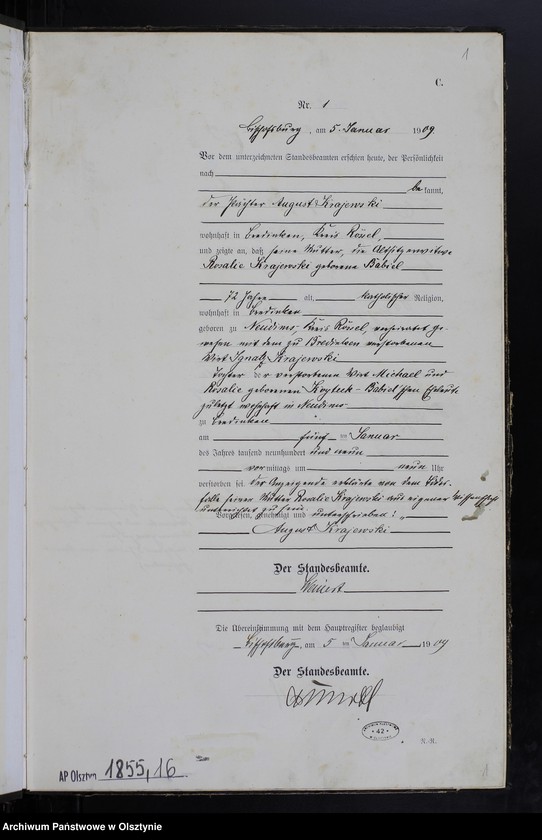 1
C.
Nr. 1
Bischofsburg, am 5. Januar 1909
Vor dem unterzeichneten Standesbeamten erschien heute, der Persönlichkeit
nach
bekannt,
der Pächter August Krajewski
wohnhaft in Bredinken, Kreis Rössel,
und zeigte an, daß seine Mutter, die Altsitzerwitwe
Rosalie Krajewski geborene Babiel
72 Jahre alt, katholischer Religion,
wohnhaft in Bredinken
geboren zu Neudims, Kreis Rössel, verheiratet ge-
wesen mit dem zu Bredinken verstorbenen
Wirt Ignatz Krajewski
Tochter der verstorbenen Wirt Michael und
Rosalie geborenen Babiel'schen Eheleute
zuletzt wohnhaft in Neudims
zu Bredinken
am fünften Januar
des Jahres tausend neunhundert und neun
vormittags um neun Uhr
verstorben sei. Der Anzeigende erklärte von dem Todes-
falle seiner Mutter Rosalie Krajewski aus eigener Wissenschaft
unterrichtet zu sein.
Vorgelesen, genehmigt und unterschrieben:
August Krajewski
Der Standesbeamte.
Die Übereinstimmung mit dem Hauptregister beglaubigt
Bischofsburg, am 5 ten Januar 1909
Der Standesbeamte.
42
AP Olsztyn 1855,16
1
Archiwum Państwowe w Olsztynie